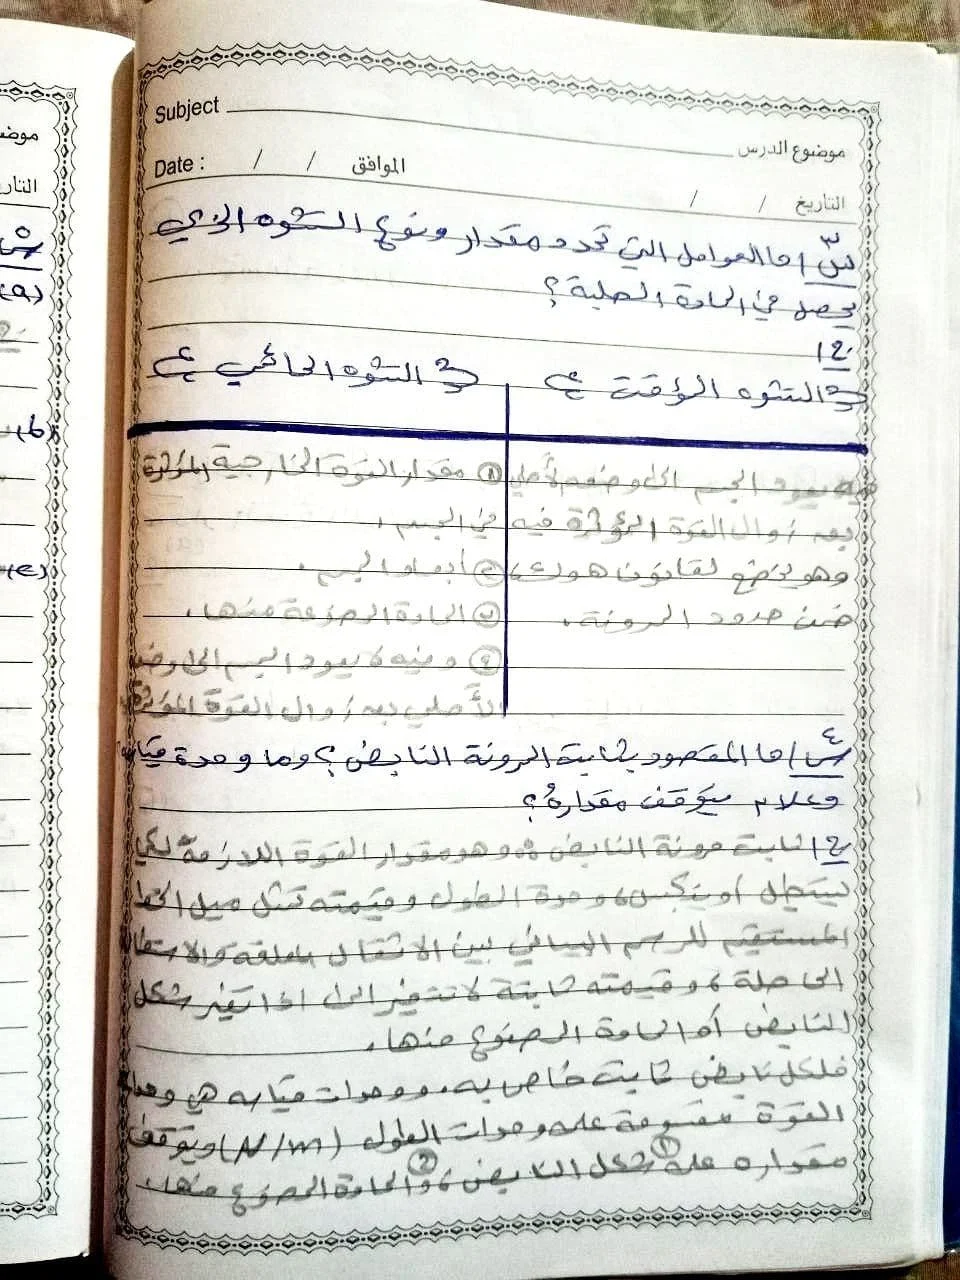 Subject
موضوع الدرس
Date : / / الموافق
التاريخ / /
س٣/ ما العوامل التي تحدد مقدار ونوع التشوه الذي
يحصل في المادة الصلبة؟
ج/
التشوه المؤقت
التشوه الدائمي
فيه يعود الجسم الى وضعه الأصلي
بعد زوال القوة المؤثرة فيه
وهو يخضع لقانون هوك،
ضمن حدود المرونة.
① مقدار القوة الخارجية المؤثرة
في الجسم.
② أبعاد الجسم.
③ المادة المصنوعة منها.
④ وفيه لا يعود الجسم الى وضعه
الأصلي بعد زوال القوة المؤثرة
س٤/ ما المقصود بثابت المرونة النابض؟ وما وحدة قياسه
وعلام يتوقف مقداره؟
ج/ ثابت مرونة النابض: وهو مقدار القوة اللازمة لكي
يستطيل أو ينكبس، وحدة الطول وقيمته تمثل ميل الخط
المستقيم للرسم البياني بين الاثقال المعلقة والاستطالة
الى حلة، وقيمته ثابتة لا تتغير الى اذا تغير شكل
النابض أو المادة المصنوع منها.
فلكل نابض ثابت خاص به. ووحدات قياسه هي وحدات
القوة مقسومة على وحدات الطول (N/m) ويتوقف
مقداره على ① شكل النابض، ② والمادة المصنوع منها.
موضو
التار
(a)
(b)
(c)